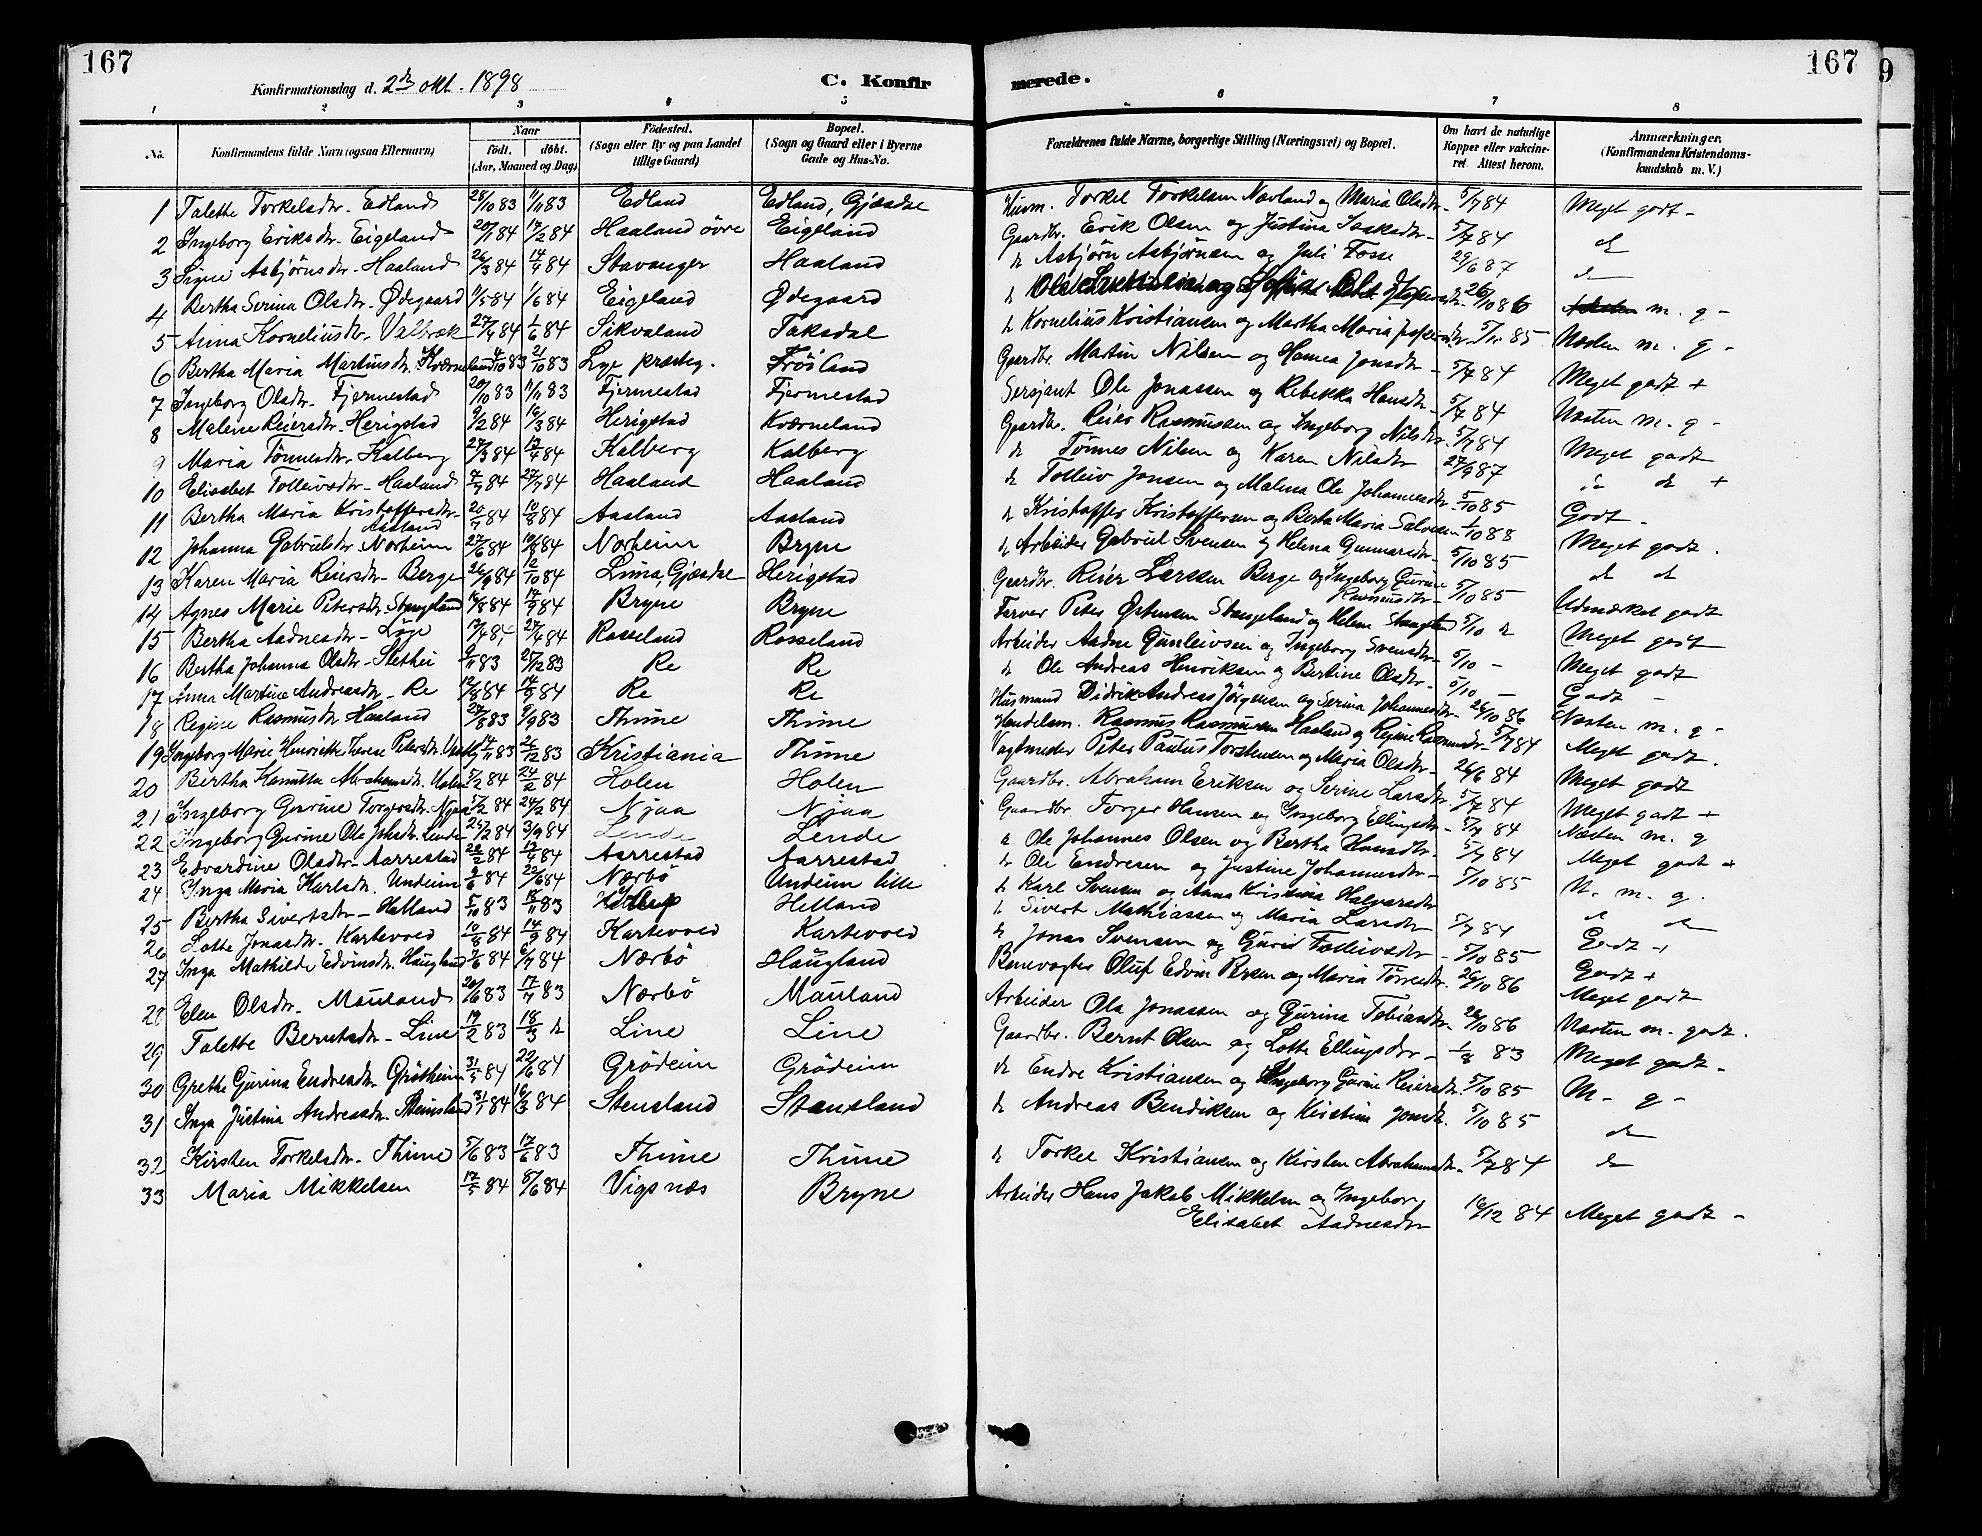 167
Konfirmationsdag d. 2de okt. 1898
C. Konfirmerede.
167
9
1 2 3 4 5 6 7 8
No. Konfirmandens fulde Navn (ogsaa Efternavn) Naar födt. döbt. (Aar, Maaned og Dag) Födested. (Sogn eller By og paa Landet tillige Gaard) Bopæl. (Sogn og Gaard eller i Byerne Gade og Hus-No. Forældrenes fulde Navne, borgerlige Stilling (Næringsvei) og Bopæl. Om havt de naturlige Kopper eller vakcineret. Attest herom. Anmærkninger, (Konfirmandens Kristendomskundskab m. V.)
1 Talette Torkelsdtr. Edland 28/10 83 11/11 83 Edland Edland, Gjæsdal Husm. Torkel Torkelsen Nævland og Maria Olsdtr. 5/7 84 Meget godt -
2 Ingeborg Eriksdtr. Eigeland 20/1 84 17/2 84 Haaland övre Eigeland Gaardbr. Erik Olsen og Justina Isaksdtr. 5/7 84 do
3 Signe Asbjörnsdtr. Haaland 26/3 84 14/4 84 Stavanger Haaland do Asbjörn Asbjörnsen og Juli Fosse 29/6 87 do
4 Bertha Serina Olsdtr. Ödegaard 11/5 84 1/6 84 Eigeland Ödegaard 26/10 86 m. g -
5 Anna Korneliusdtr. Valbræk 27/4 84 1/6 84 Sikvaland Taksdal do Kornelius Kristiansen og Martha Maria Jespersdtr. 5/10 85 Næsten m. g -
6 Bertha Maria Martinsdtr. Kværneland 4/10 83 21/10 83 Lye præsteg. Fröiland Gaardbr. Martin Nilsen og Hanna Jonsdtr. 5/7 84 Meget godt +
7 Ingeborg Olsdtr. Fjermestad 20/10 83 11/11 83 Fjermestad Fjermestad Sersjant Ole Jonassen og Rebekka Hansdtr. 5/7 84 Næsten m. g -
8 Malene Reiersdtr. Herigstad 9/2 84 16/3 84 Herigstad Kværneland Gaardbr. Reier Rasmussen og Ingeborg Nilsdtr. 5/7 84 Meget godt
9 Maria Tönnesdtr. Kalberg 27/3 84 13/4 84 Kalberg Kalberg do Tönnes Nilsen og Karen Nilsdtr 27/9 87 do +
10 Elisabet Tolleivsdtr. Haaland 84 27/7 84 Haaland Haaland do Tolleiv Jonsen og Malena Ole Johannesdtr. 5/10 85 Godt -
11 Bertha Maria Kristoffersdtr. Aasland 84 10/8 84 Aasland Aasland do Kristoffer Kristoffersen og Berta Maria Salvesen 1/10 88 Meget godt.
12 Johanna Gabrielsdtr. Norheim 27/6 84 10/8 84 Norheim Bryne Arbeider Gabriel Svensen og Helena Gunnarsdtr. 5/10 85 do do
13 Karen Maria Reiersdtr. Berge 26/9 84 12/10 84 Lima, Gjæsdal Herigstad Gaardbr. Reier Larsen Berge og Ingeborg Gurine Rasmusdtr. 5/10 85 Udmærket godt
14 Agnes Marie Petersdtr. Stangeland 16/8 84 84 Bryne Bryne Farver Peter Östensen Stangeland og Helene Stangeland 5/10 do Meget godt
15 Bertha Aadnesdtr. Löge 27/4 84 Rosseland Rosseland Arbeider Aadne Gunleivsen og Ingeborg Svensdtr. 5/10 - Meget godt
16 Bertha Johanna Olsdtr. Slethei 9/11 83 25/12 83 Re Re do Ole Andreas Henriksen og Bertine Olsdtr. 5/10 - Godt -
17 Anna Martine Andreasdtr. Re 12/8 84 14/9 84 Re Re Husmand Didrik Andreas Jörgensen og Serina Johannesdtr 26/10 86 Næsten m. g -
18 Regine Rasmusdtr. Haaland 27/8 83 9/9 83 Thime Thime Handelsm. Rasmus Rasmussen Haaland og Regine Rasmusdtr. 5/7 84 Meget godt.
19 Ingeborg Marie Henriette Therese Petersdtr. 14/11 83 26/12 83 Kristiania Thime Vagtmester Peter Paulus Torstensen og Maria Olsdtr. 26/6 84 Meget godt
20 Bertha Kanutta Abrahamsdtr. Holen 5/2 84 24/2 84 Holen Holen Gaardbr. Abraham Eriksen og Serine Larsdtr. 5/7 84 Meget godt +
21 Ingeborg Gurine Torgersdtr. Njaa 5/2 84 24/2 84 Njaa Njaa Gaardbr. Torger Hansen og Ingeborg Ellingsdtr. 5/7 84 Næsten m. g
22 Ingeborg Gurine Ole Johsdtr. Lende 84 3/9 84 Lende Lende do Ole Johannes Olsen og Bertha Hansdtr. 5/7 84 Meget godt +
23 Edvardine Olsdtr. Aarrestad 84 13/4 84 Aarrestad Aarrestad do Ole Endresen og Justine Johannesdtr. 5/10 85 N. m. g.
24 Inga Maria Karlsdtr. Undeim 84 22/6 84 Nærbö Undeim lille do Karl Svensen og Anna Kristina Halvorsdtr do do
25 Bertha Sivertsdtr. Helland 5/10 83 83 Helland do Sivert Mathiassen og Maria Larsdtr 5/7 84 Godt +
26 Lotte Jonasdtr. Kartevold 10/8 84 14/9 84 Kartevold Kartevold do Jonas Svensen og Gurid Tolleivsdtr - 5/10 85 Godt +
27 Inga Mathilde Edvinsdtr. Haugland 84 84 Nærbö Haugland Banevogter Oluf Edvin Persen og Maria Törresdtr. 26/10 86 Meget godt
28 Elen Olsdtr. Mauland 83 83 Nærbö Mauland Arbeider Ola Jonassen og Gurina Tobiasdtr. 26/10 86 Næsten m. godt.
29 Talette Berntsdtr. Line 19/2 83 18/3 do Line Line Gaardbr. Bernt Olsen og Lotte Ellingsdtr - 1/8 83 Meget godt -
30 Grethe Gurina Endresdtr. Grötheim 31/5 84 22/6 84 Grödeim Grödeim do Endre Kristiansen og Ingeborg Gurine Reiersdtr. 5/10 85 M - g -
31 Inga Justina Andreasdtr. Stensland 31/1 84 16/3 84 Stensland Stensland do Andreas Bendiksen og Kirstine Jonsdtr. 5/10 85 do
32 Kirsten Torkelsdtr. Thime 5/6 83 17/6 83 Thime Thime do Torkel Kristiansen og Kirsten Abrahamsdtr. 5/7 84 do
33 Maria Mikkelsen 12/5 84 5/6 84 Vigsnæs Bryne Arbeider Hans Jakob Mikkelsen og Ingeborg Elisabet Aadnesdtr 16/12 84 Meget godt -